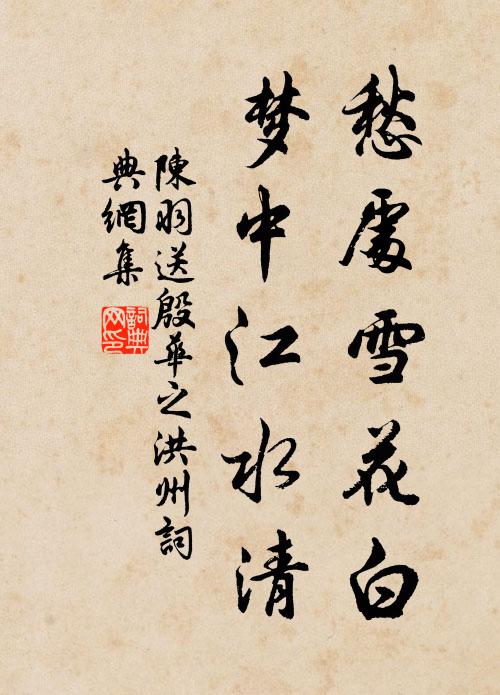 愁處雪花白
梦中江水清
陳羽送殷華之洪州詞
典網集
詞典
网印